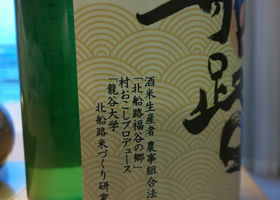 路
酒米生産者 農事組合法
「北船路福谷の郷」
村おこしプロデュース
「龍谷大学
北船路米づくり研究